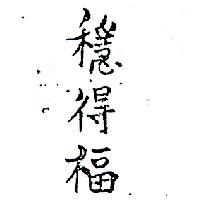 穩得福